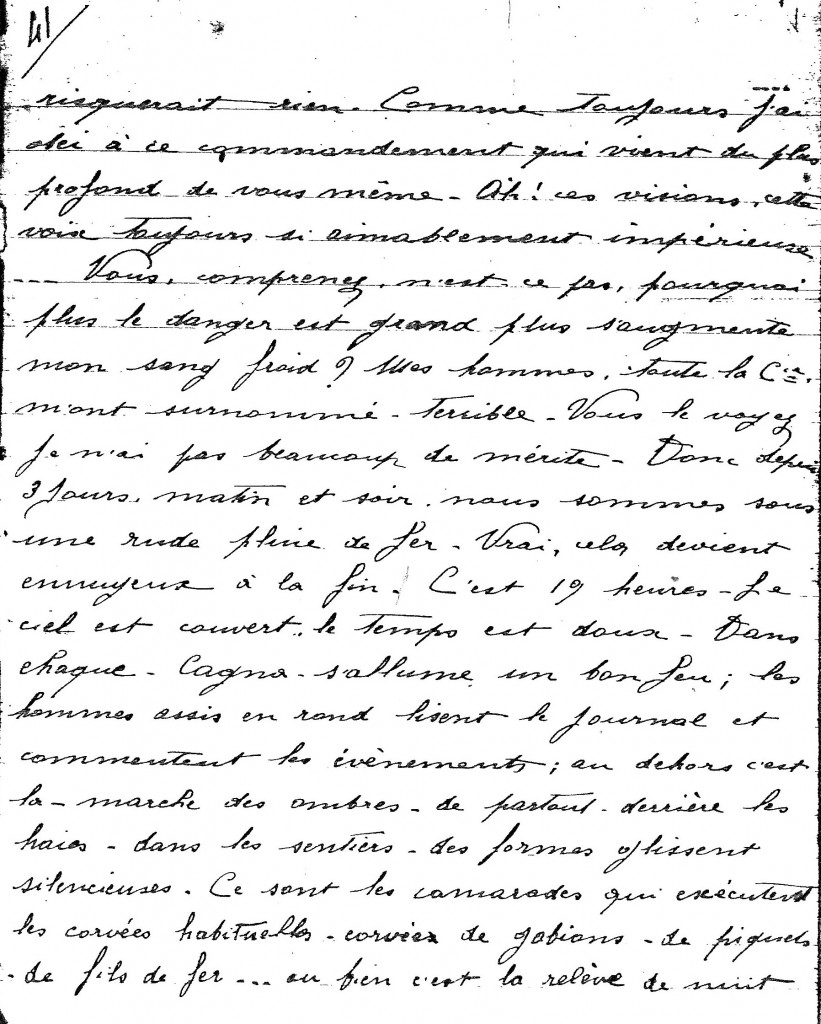 41/
risquerait rien. Comme toujours j'ai
obéi à ce commandement qui vient du plus
profond de vous même - Ah! ces visions, cette
voix toujours si aimablement impérieuse
... Vous, comprenez, n'est ce pas, pourquoi
plus le danger est grand plus s'augmente
mon sang froid ? Mes hommes, toute la Cie,
m'ont surnommé - Terrible - Vous le voyez
je n'ai pas beaucoup de mérite - Donc depuis
3 jours, matin et soir, nous sommes sous
une rude pluie de fer - Vrai, cela devient
ennuyeux à la fin. C'est 19 heures - Le
ciel est couvert, le temps est doux - Dans
chaque - Cagna - s'allume un bon feu ; les
hommes assis en rond lisent le journal et
commentent les évènements ; au dehors c'est
la - marche des ombres - de partout - derrière les
haies - dans les sentiers - des formes glissent
silencieuses. Ce sont les camarades qui exécutent
les corvées habituelles - corvées de gabions - de piquets
- de fils de fer ... ou bien c'est la relève de nuit